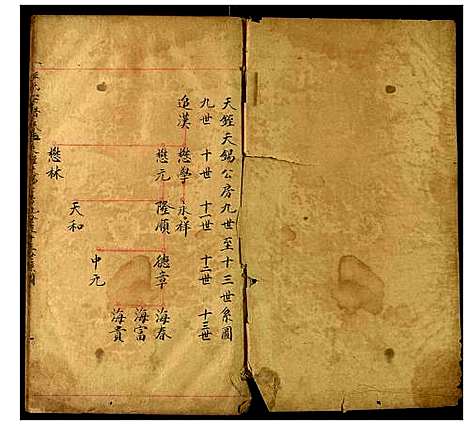 天經天錫公房九世至十三世系圖
九世 十世 十一世 十二世 十三世
追漢 懋學 永祥
懋元 隆順 德章 海春
海富
海貴
申元
天和
懋林